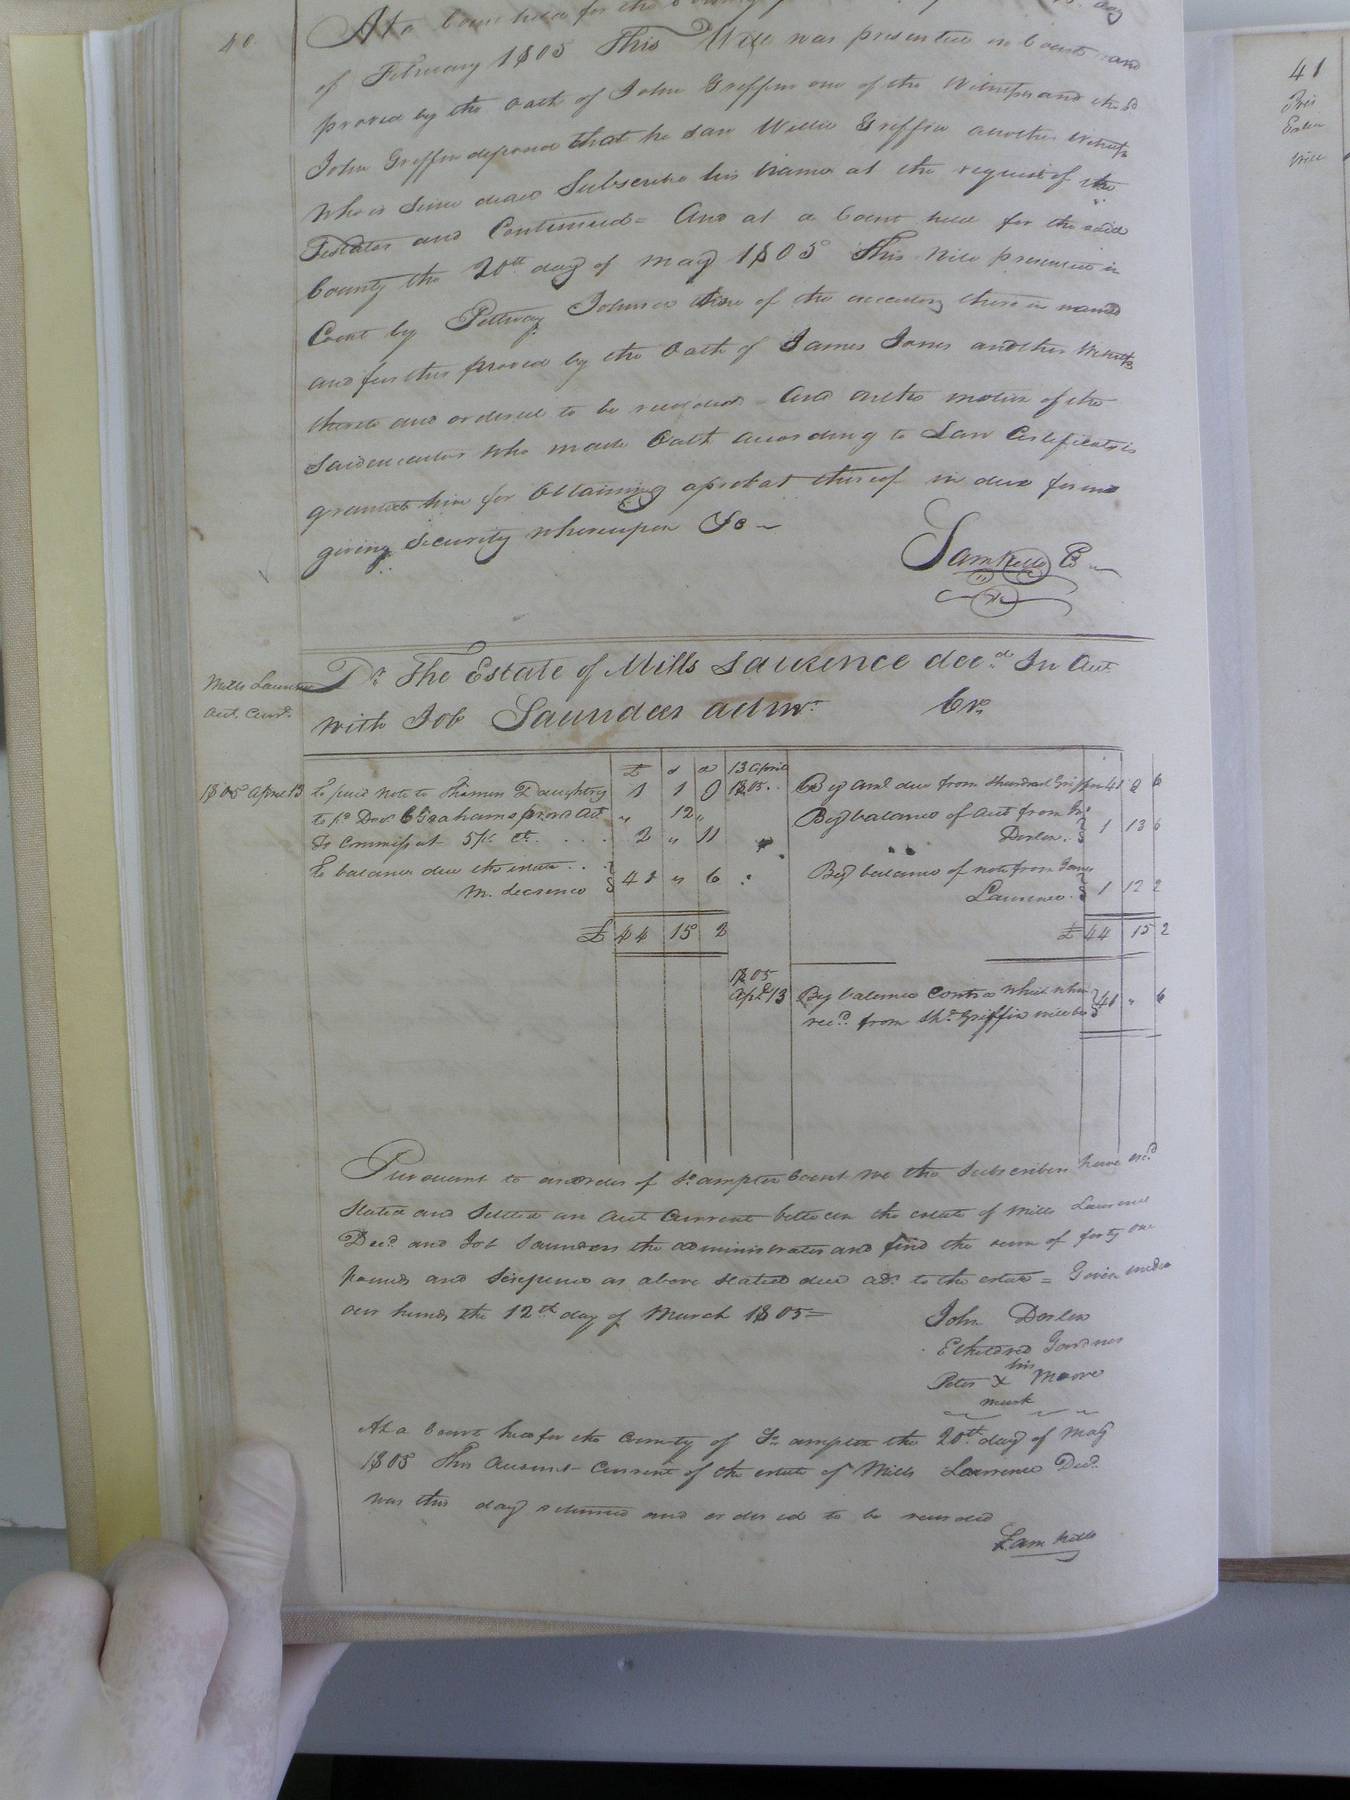 40
At a Court held for the County
of February 1805 This Will was presented in Court and
proved by the Oath of John Griffin one of the Witnesses and the sd
John Griffin deposed that he saw Willie Griffin another Witness
who is Since dead Subscribe his name at the request of the
Testator and Continued = And at a Court held for the said
County the 20th day of May 1805 This Will presented in
Court by Pettway Johnson One of the executors there in named
and further proved by the Oath of James Jones another Witness
thereto and ordered to be recorded - And on the motion of the
said executor who made Oath according to Law Certificate is
granted him for Obtaining a probat thereof in due form
giving Security whereupon &c
Sam Kello C
Mills Laurence
Acct. Curt.
Dr. The Estate of Mills Laurence decd. In Acct
with Job Saunders admr. Cr.
£ s d 13 April
1805 April 13 To paid note to Daughtry 1 1 9 1805 By amt due from Griffin 41 9 6
to pd. Doctr. Grahams provd Act " 12 "
By balance of Acct from Jno
To Commissn at 5 Pr Ct. 2 " 11
Doslen. 1 13 6
To balance due the estate
M. Laurence 41 " 6
By balance of note from
Laurence. 1 12 2
£ 44 15 2 £ 44 15 2
1805
Apl. 13 By balance Contra which when 41 " 6
recd. from Shd. Griffin will be
Pursuant to an order of So.ampton Court we the Subscribers have
Stated and Settled an Acct Current between the estate of Mills Laurence
Decd. and Job Saunders the administrator and find the sum of forty one
pounds and Sixpence as above stated due to the estate = Given under
our hands the 12th day of March 1805 =
John Doslen
Etheldred Gardner
his
Peter X Moore
mark
At a Court held for the County of So.ampton the 20th day of May
1805 This Account Current of the estate of Mills Laurence Decd.
was this day returned and ordered to be recorded
Sam Kello
41
Will